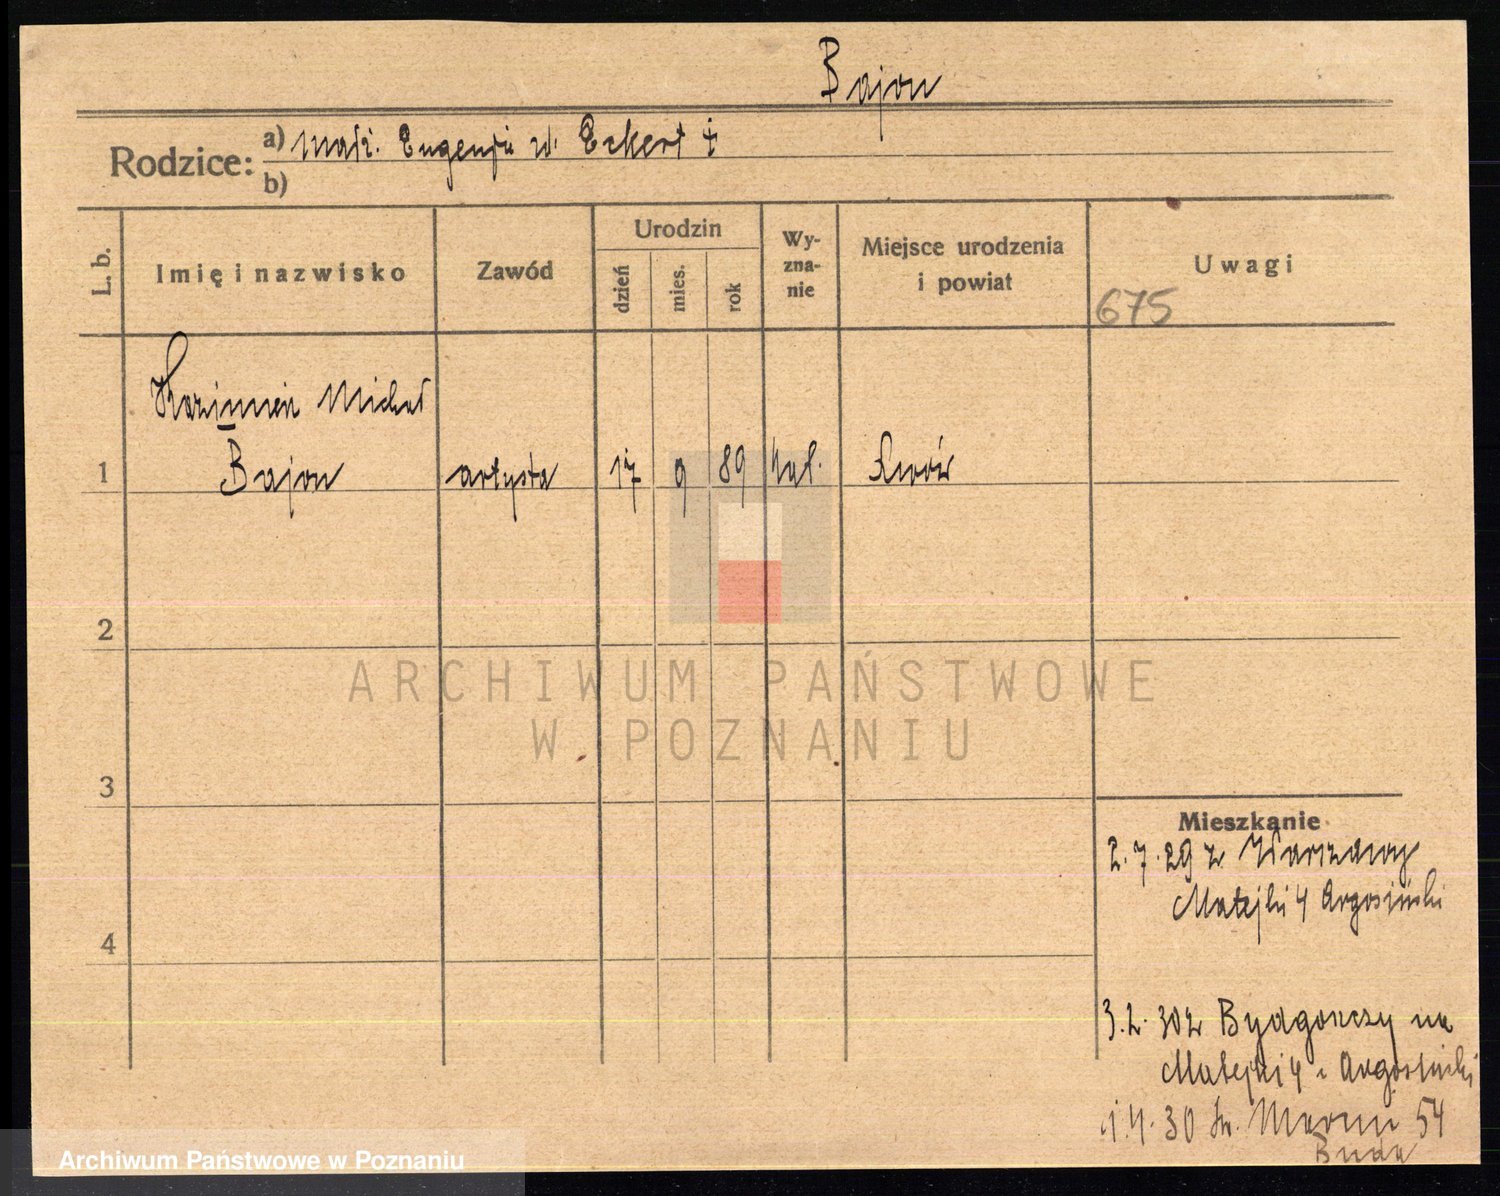 Bajon
Rodzice: a) małż. Eugenji ur. Eckert ‡
b)
L. b.
Imię i nazwisko
Zawód
Urodzin
dzień
mies.
rok
Wy-
zna-
nie
Miejsce urodzenia
i powiat
Uwagi
675
Kazimierz Michał
1 Bajon artysta 17 9 89 kat. Lwów
2
3
4
Mieszkanie
2.7.29 z Warszawy
Matejki 4
3.2.30 z Bydgoszczy na
Matejki 4
1.4.30 św. Marcin 54
ARCHIWUM PAŃSTWOWE
W POZNANIU
Archiwum Państwowe w Poznaniu